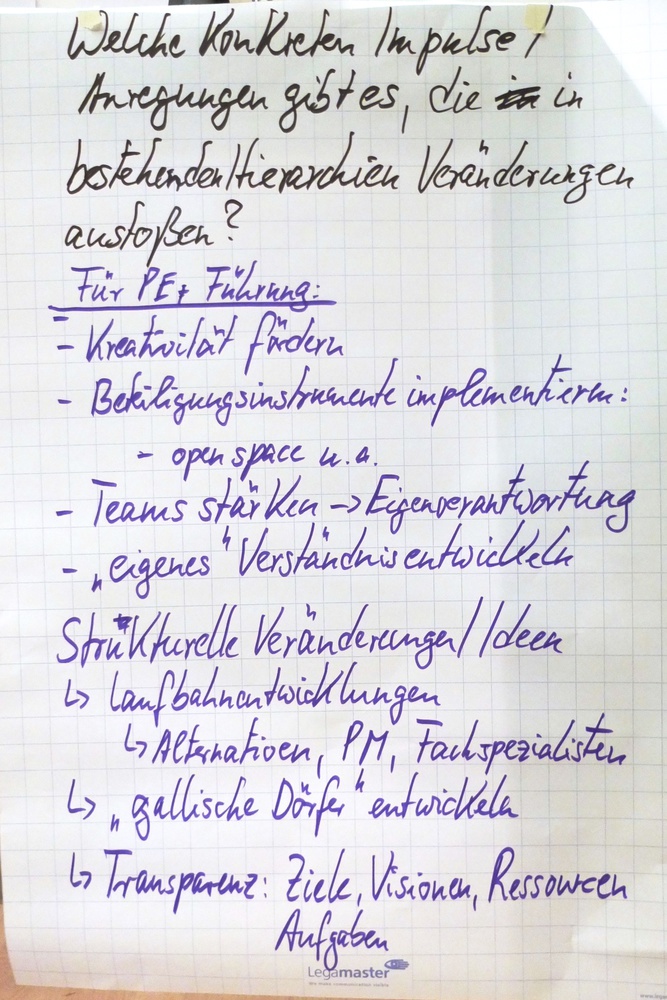 Welche konkreten Impulse/
Anregungen gibt es, die in
bestehenden Hierarchien Veränderungen
anstoßen?
Für PE + Führung:
- Kreativität fördern
- Beteiligungsinstrumente implementieren:
- open space u.a.
- Teams stärken -> Eigenverantwortung
- „eigenes" Verständnis entwickeln
Strukturelle Veränderungen/Ideen
↳ Laufbahnentwicklungen
↳ Alternativen, PM, Fachspezialisten
↳ „gallische Dörfer" entwickeln
↳ Transparenz: Ziele, Visionen, Ressourcen
Aufgaben
Legamaster
We make communication visible